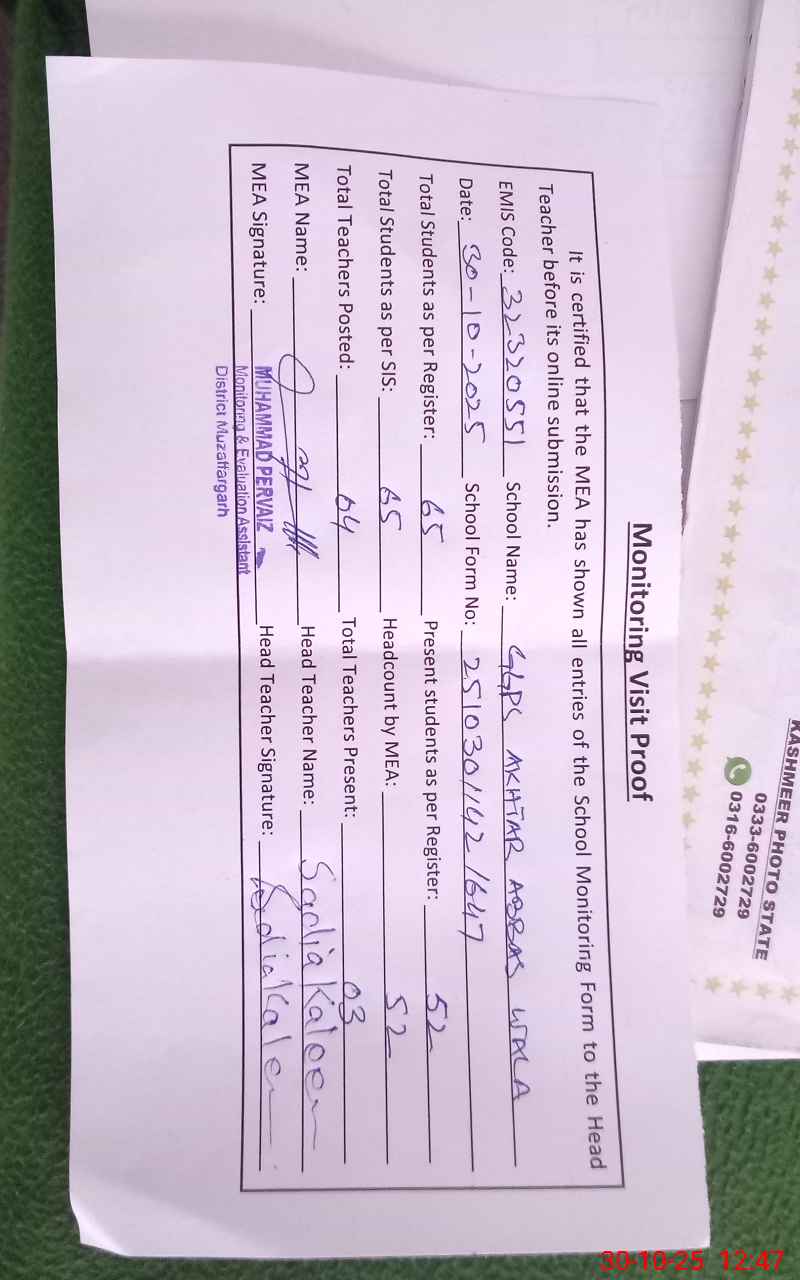 Monitoring Visit Proof
It is certified that the MEA has shown all entries of the School Monitoring Form to the Head
Teacher before its online submission.
EMIS Code: 32320551 School Name: GGPS AKHTAR ABBAS WALA
Date: 30-10-2025 School Form No: 25103011421647
Total Students as per Register: 65 Present students as per Register: 52
Total Students as per SIS: 65 Headcount by MEA: 52
Total Teachers Posted: 04 Total Teachers Present: 03
MEA Name: Head Teacher Name: Sadia Kaleem
MEA Signature: MUHAMMAD PERVAIZ Head Teacher Signature: Sadia Kalem
Monitoring & Evaluation Assistant
District Muzaffargarh
KASHMEER PHOTO STATE
0333-6002729
0316-6002729
30-10-25 12:47